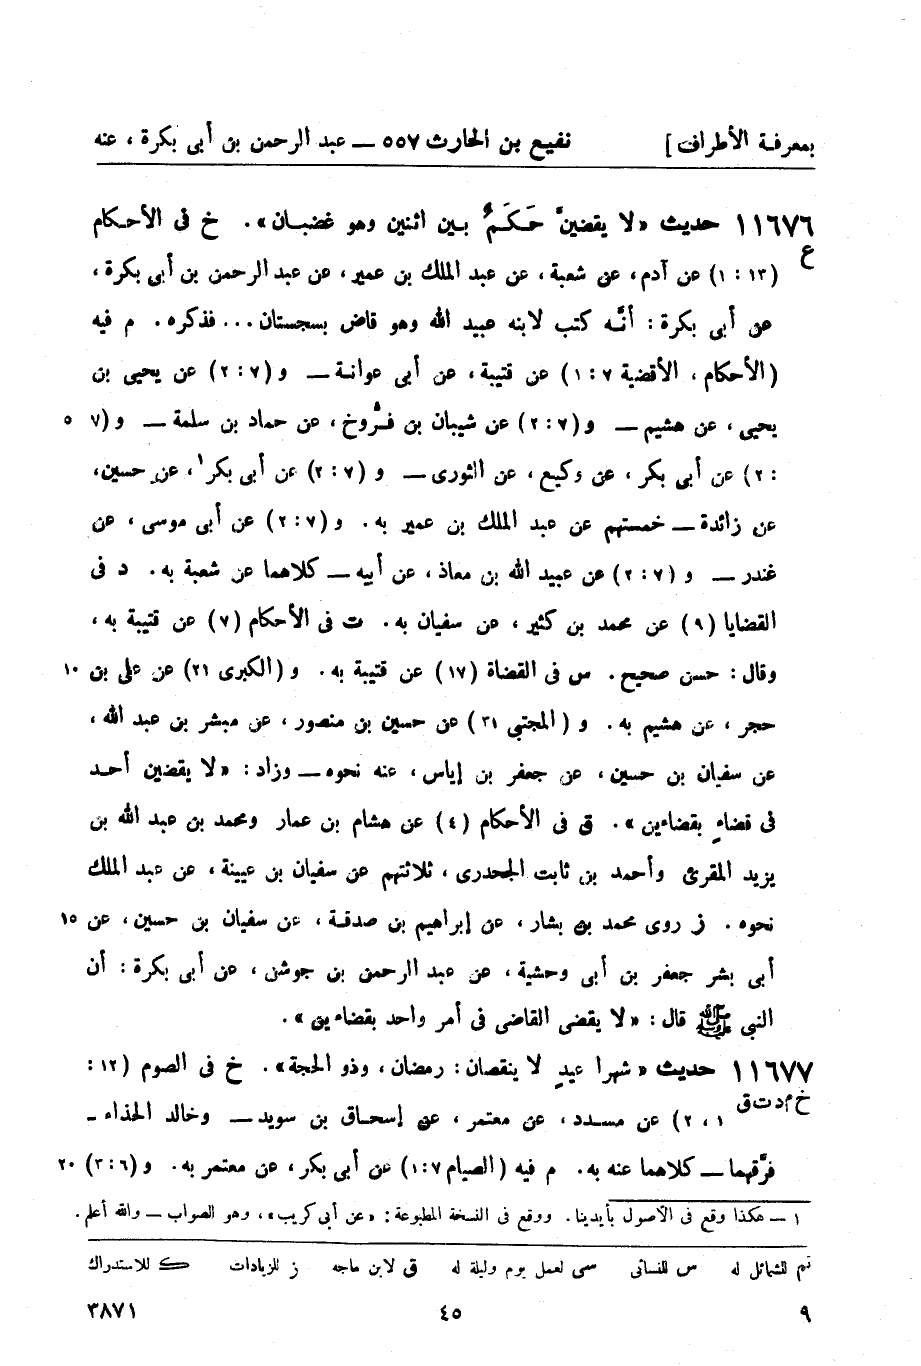 بمعرفة الأطراف] نفيع بن الحارث ٥٥٧ — عبد الرحمن بن أبى بكرة، عنه
١١٦٧٦ حديث «لا يقضينَّ حَكَمٌ بين اثنين وهو غضبان». خ فى الأحكام
ع
(١٣ : ١) عن آدم، عن شعبة، عن عبد الملك بن عمير، عن عبد الرحمن بن أبى بكرة،
عن أبى بكرة: أنَّه كتب لابنه عبيد الله وهو قاض بسجستان... فذكره. م فيه
(الأحكام، الأقضية ٧ : ١) عن قتيبة، عن أبى عوانة — و(٧ : ٢) عن يحيى بن
يحيى، عن هشيم — و(٧ : ٢) عن شيبان بن فرُّوخ، عن حماد بن سلمة — و(٧ ٥
: ٢) عن أبى بكر، عن وكيع، عن الثورى — و (٧ : ٢) عن أبى بكر١، عن حسين،
عن زائدة — خمستهم عن عبد الملك بن عمير به. و(٧ : ٢) عن أبى موسى، عن
غندر — و (٧ : ٢) عن عبيد الله بن معاذ، عن أبيه — كلاهما عن شعبة به. د فى
القضايا (٩) عن محمد بن كثير، عن سفيان به. ت فى الأحكام (٧) عن قتيبة به،
وقال: حسن صحيح. س فى القضاة (١٧) عن قتيبة به. و (الكبرى ٢١) عن على بن ١٠
حجر، عن هشيم به. و (المجتبى ٣١) عن حسين بن منصور، عن مبشر بن عبد الله،
عن سفيان بن حسين، عن جعفر بن إياس، عنه نحوه — وزاد: «لا يقضين أحد
فى قضاءٍ بقضاءين». ق فى الأحكام (٤) عن هشام بن عمار ومحمد بن عبد الله بن
يزيد المقرئ وأحمد بن ثابت الجحدرى، ثلاثتهم عن سفيان بن عيينة، عن عبد الملك
نحوه. ز روى محمد بن بشار، عن إبراهيم بن صدقة، عن سفيان بن حسين، عن ١٥
أبى بشر جعفر بن أبى وحشية، عن عبد الرحمن بن جوشن، عن أبى بكرة: أن
النبى ﷺ قال: «لا يقضى القاضى فى أمر واحد بقضاءين».
١١٦٧٧ حديث «شهرا عيدٍ لا ينقصان: رمضان، وذو الحجة». خ فى الصوم (١٢ :
خ م د ت ق
١، ٢) عن مسدد، عن معتمر، عن إسحاق بن سويد — وخالد الحذاء -
فرَّقهما — كلاهما عنه به. م فيه (الصيام ٧ : ١) عن أبى بكر، عن معتمر به. و(٦ : ٣) ٢٠
١ — هكذا وقع فى الأصول بأيدينا. ووقع فى النسخة المطبوعة: «عن أبى كريب»، وهو الصواب — والله أعلم.
تم للشمائل له س للنسائى سى لعمل يوم وليلة له ق لابن ماجه ز للزيادات ك للاستدراك
٩ ٤٥ ٣٨٧١